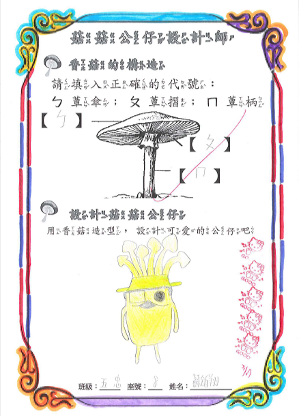 菇菇公仔設計師
香菇的構造
請填入正確的代號：
ㄅ 草傘；ㄆ 草摺；ㄇ 草柄
【ㄅ】
【ㄆ】
【ㄇ】
設計菇菇公仔
用香菇造型，設計可愛的公仔吧
班級： 座號： 姓名：